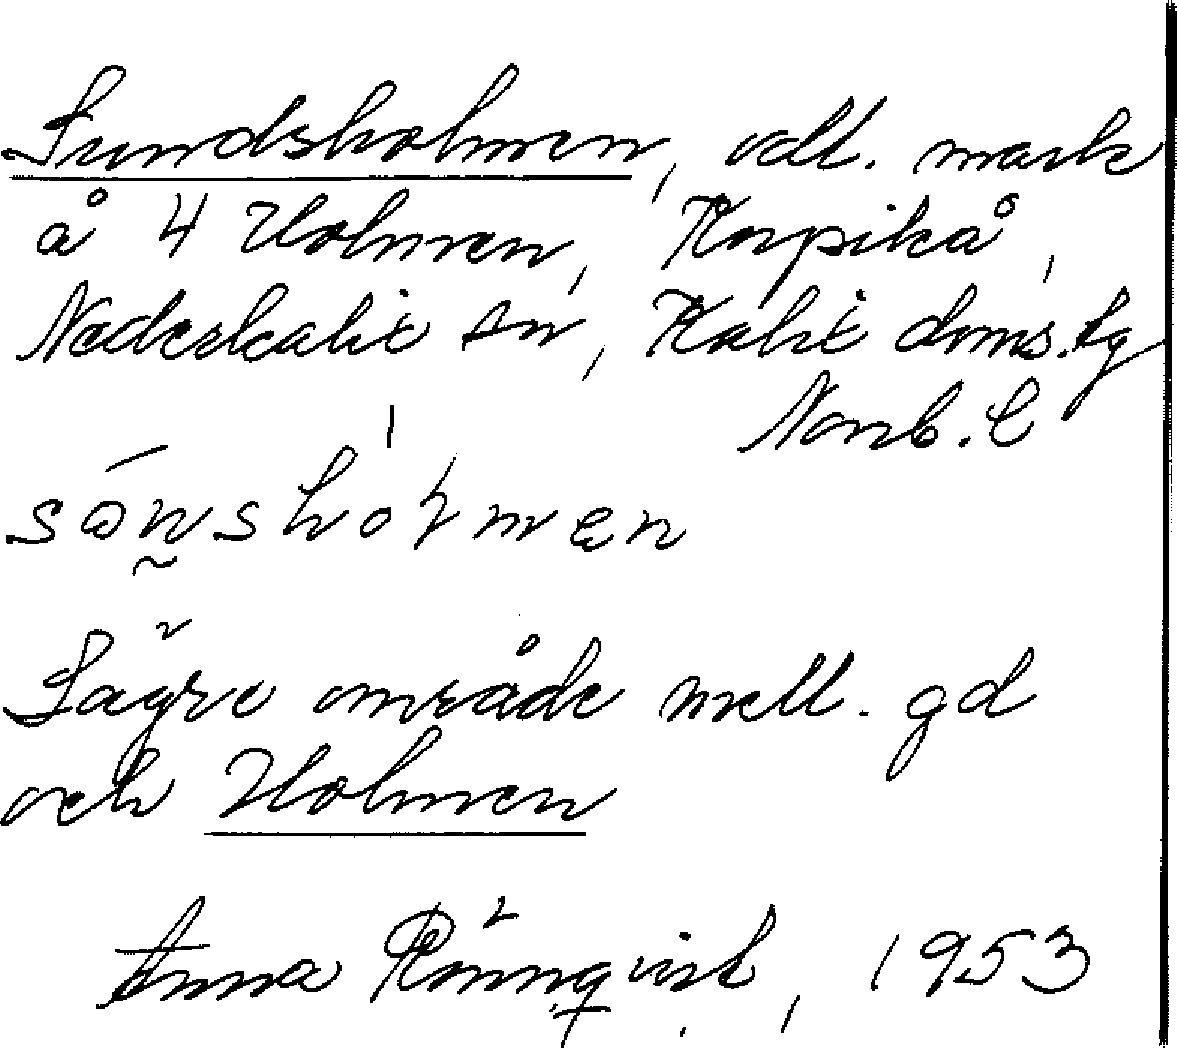 Sundsholmen, odl. mark
å 4 Holmen, Korpikå,
Nederkalix sn, Kalix doms.tg
Norrb. l
sɵnshoɫmæn
Lägre område mell. gd
och Holmen
Anna Rönnqvist, 1953